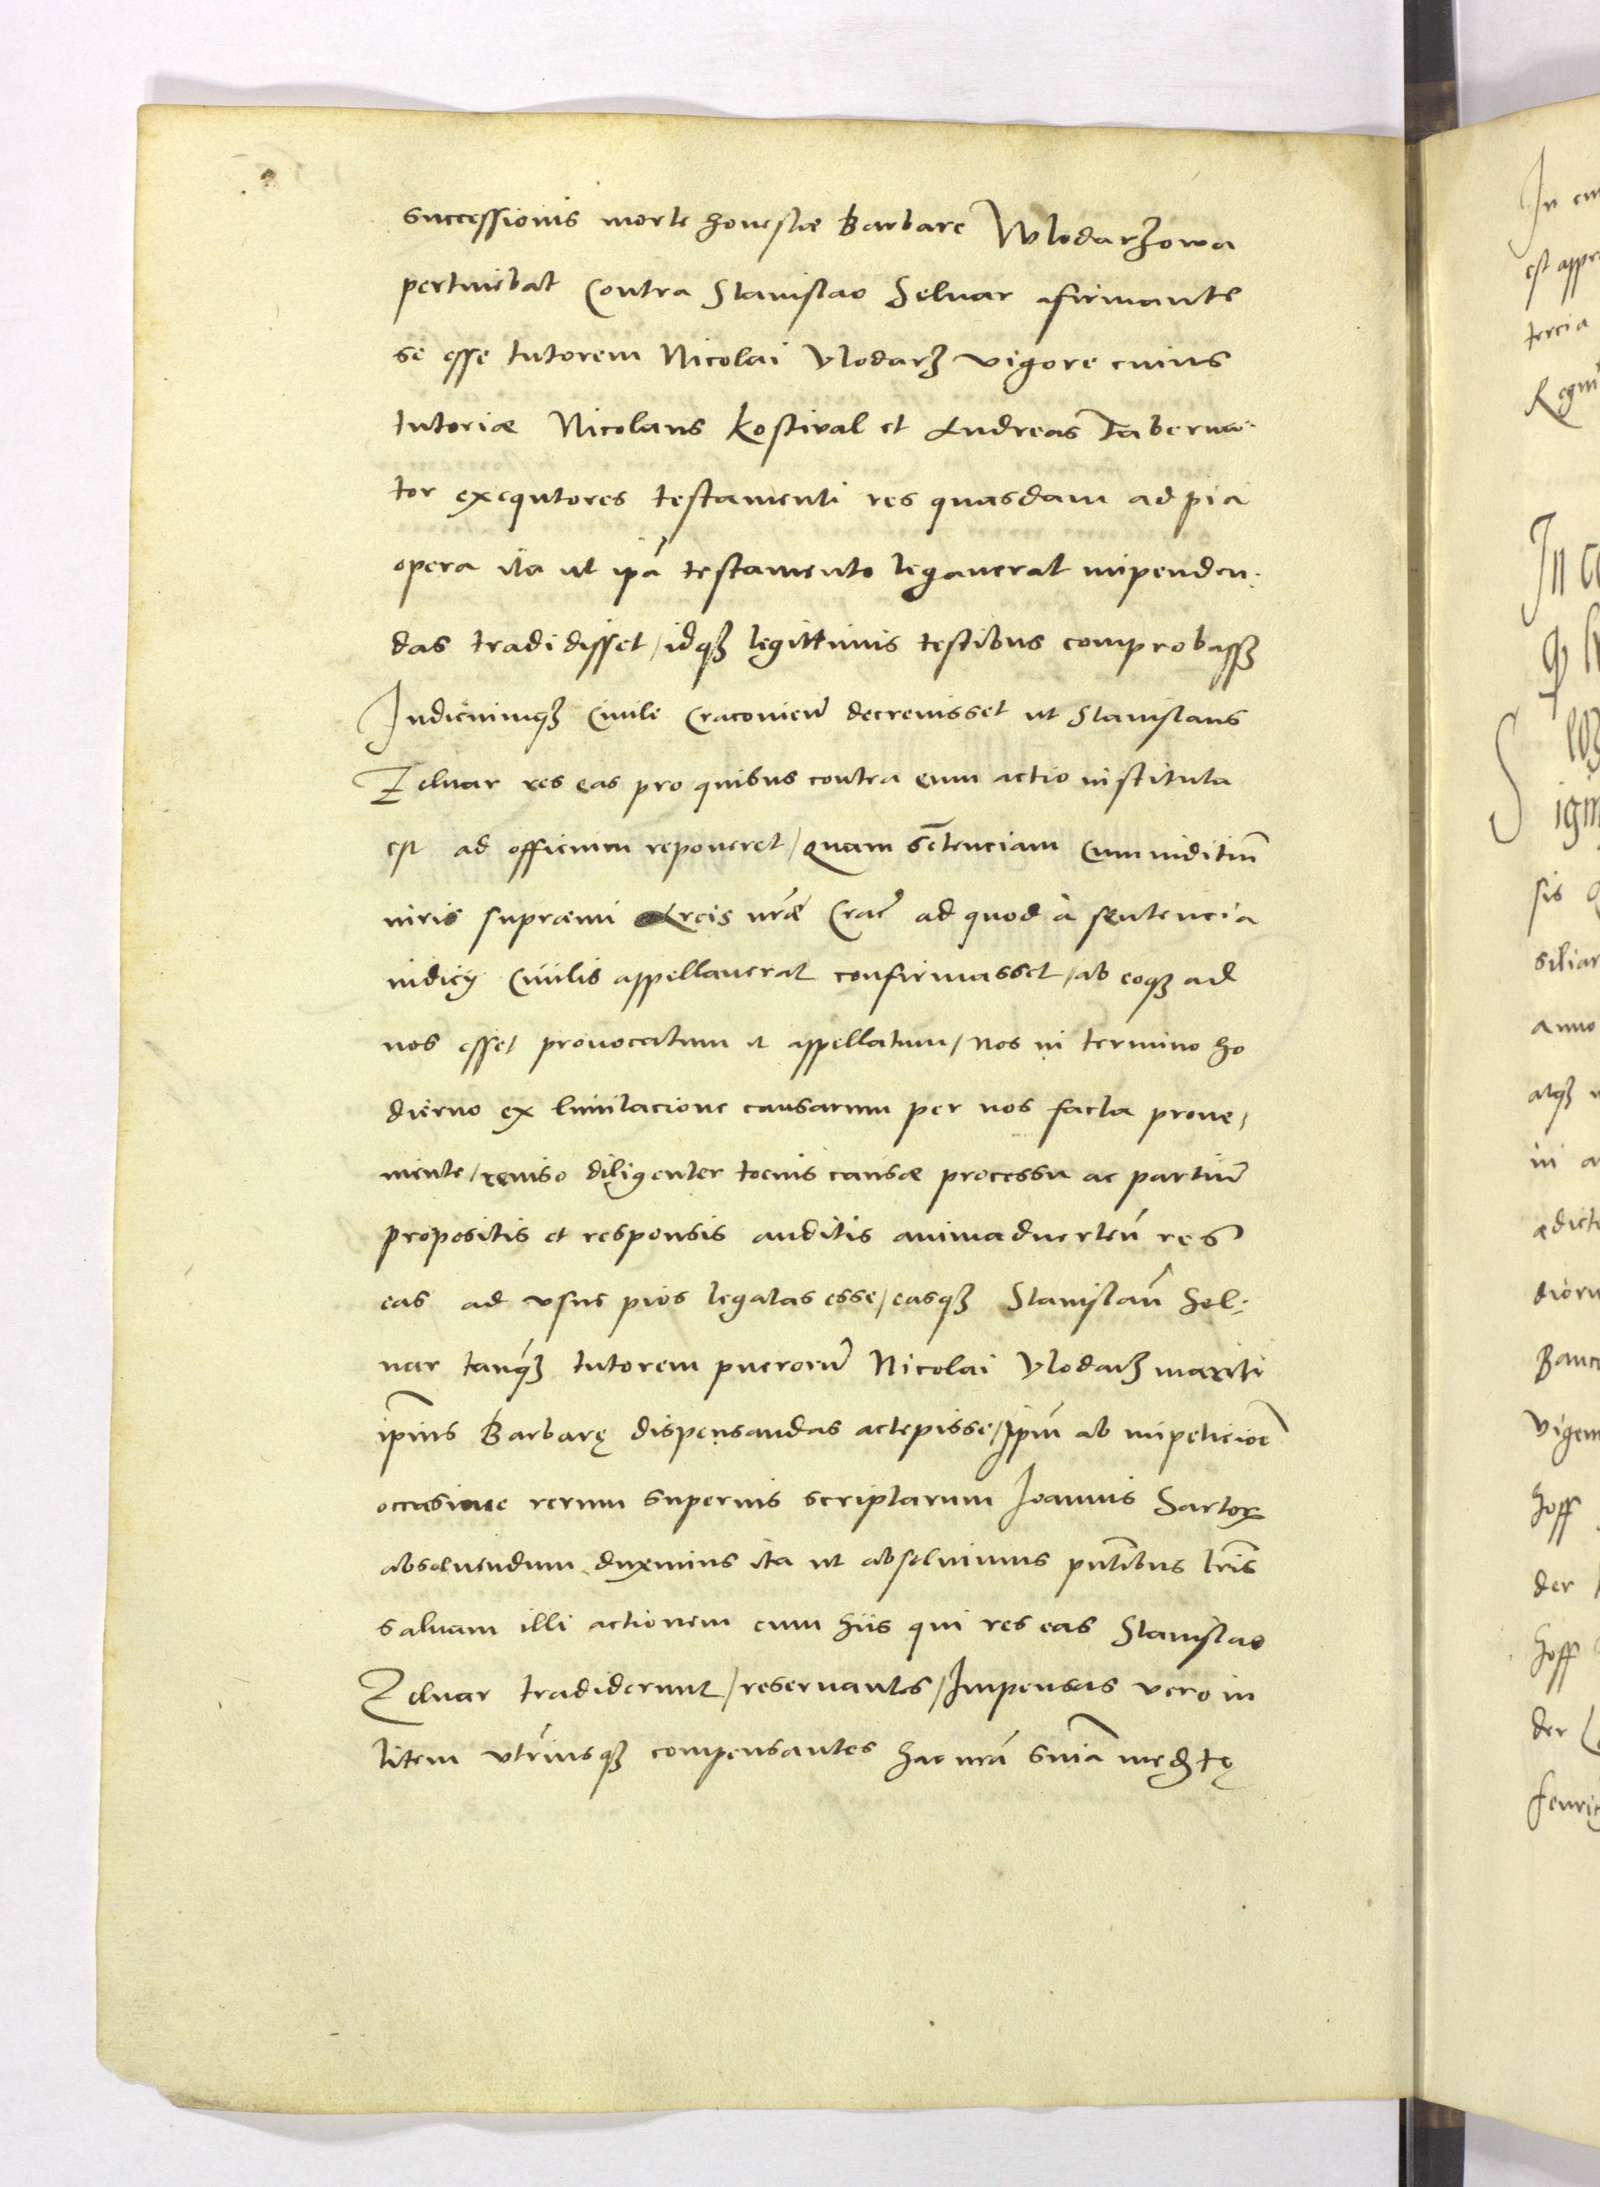 successionis morte honestæ Barbare Wlodarzowa
pertinebat Contra Stanislao Zeluar afirmante
se esse tutorem Nicolai Vlodarz vigore cuius
tutoriæ Nicolaus Kostival et Andreas Taberna-
tor exequtores testamenti res quasdam ad pia
opera ita ut ipã testamento legauerat impenden-
das tradidisset / idq₃ legittimis testibus comprobass₃
Iudiciumq₃ Ciuile Cracouieñ decreuisset ut Stanislaus
Zeluar res eas pro quibus contra eum actio instituta
est ad officium reponeret / quam sẽtenciam Cum iuditiũ
iuris supræmi Arcis nrẽ Crac̃ ad quod à sentencia
iudicij Ciuilis appellauerat confirmasset / ab eoq₃ ad
nos esset prouocatum et appellatum / nos in termino ho
dierno ex limitacione causarum per nos facta proue,
niente / reuiso diligenter tocius causæ processu ac partiũ
propositis et responsis auditis animaduerteñ res
eas ad vsus pios legatas esse / easq₃ Stanislaũ Zel-
uar tanq̃₃ tutorem puerorũ Nicolai Vlodarz mariti
ip̃ius Barbarę dispensandas accepisse / Ip̃m ab impeticioẽ
occasione rerum superius scriptarum Ioannis Sartor
absoluendum duximus ita ut absoluimus pñtibus lr̃is
saluam illi actionem cum hiis qui res eas Stanislao
Zeluar tradiderunt / reseruantes / Impensas vero in
litem vtriusq₃ compensantes hac nrã sniã medtę